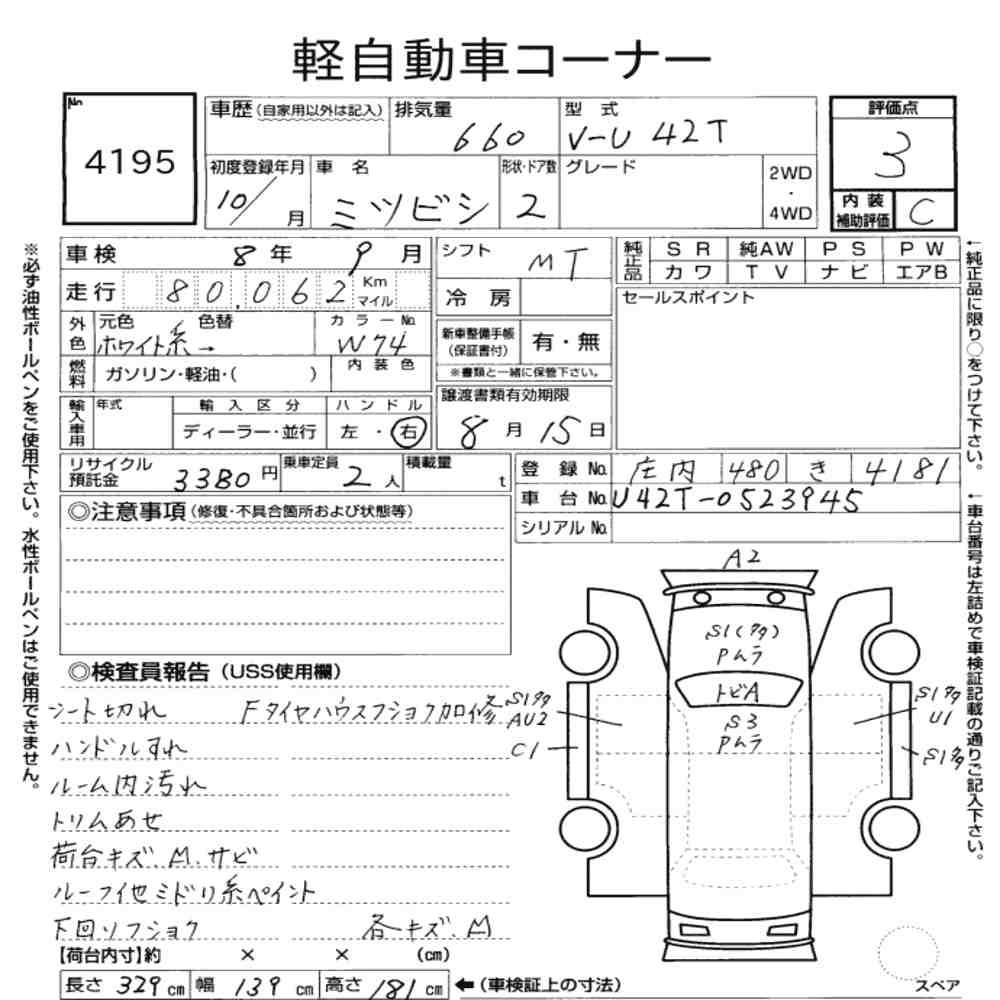 軽自動車コーナー
No. 4195
車歴(自家用以外は記入) 排気量 660 型式 V-U 42T
評価点 3
初度登録年月 10/ 月 車名 ミツビシ 形状・ドア数 2 グレード 2WD・4WD
内装補助評価 C
車検 8年 9月
走行 80,062 Km マイル
外色 元色 ホワイト系→ 色替 カラーNo. W74
燃料 ガソリン・軽油・( ) 内装色
輸入車用 年式 輸入区分 ディーラー・並行 ハンドル 左・右
シフト MT
冷房
新車整備手帳(保証書付) 有・無
※書類と一緒に保管下さい。
譲渡書類有効期限 8月15日
純正品 SR 純AW PS PW
カワ TV ナビ エアB
セールスポイント
リサイクル預託金 3380円 乗車定員 2人 積載量 t
登録No. 庄内 480 き 4181
車台No. U42T-0523945
シリアルNo.
◎注意事項(修復・不具合箇所および状態等)
◎検査員報告(USS使用欄)
シート切れ Fタイヤハウスフショク加修
ハンドルすれ
ルーム内汚れ
トリムあせ
荷台キズ.M.サビ
ルーフイセミドリ系ペイント
下回リフショク 各キズ.M
【荷台内寸】約 × × (cm)
長さ 329cm 幅 139cm 高さ 181cm ←(車検証上の寸法)
A2
S1(タタ)
Pムラ
トビA
S3
Pムラ
S1タタ
AU2
C1
S1タタ
U1
S1タタ
スペア
※必ず油性ボールペンをご使用下さい。水性ボールペンはご使用できません。
←純正品に限り○をつけて下さい。
←車台番号は左詰めで車検証記載の通りご記入下さい。